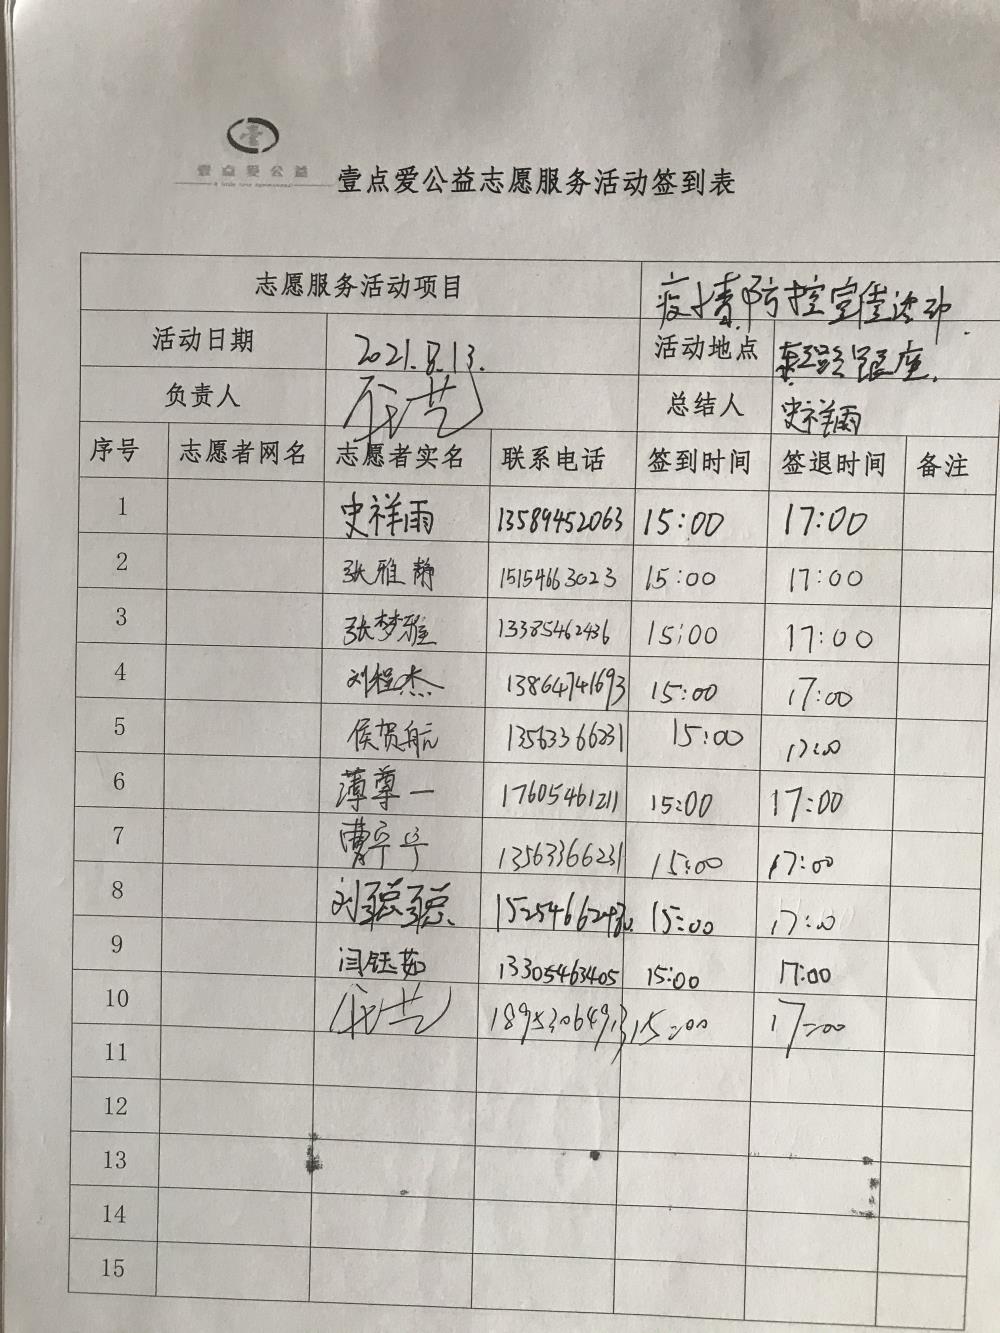 壹点爱公益
壹点爱公益志愿服务活动签到表
志愿服务活动项目 疫情防控宣传活动
活动日期 2021.8.13. 活动地点 银座
负责人 总结人 史祥雨
序号 志愿者网名 志愿者实名 联系电话 签到时间 签退时间 备注
1 史祥雨 13589452063 15:00 17:00
2 张雅静 15154663023 15:00 17:00
3 张梦雅 13385462436 15:00 17:00
4 刘程杰 13864741693 15:00 17:00
5 侯贺航 13563366231 15:00 17:00
6 薄尊一 17605461211 15:00 17:00
7 曹宁宁 13563366231 15:00 17:00
8 刘聪聪 15:00 17:00
9 闫钰茹 13305463405 15:00 17:00
10 15:00 17:00
11
12
13
14
15